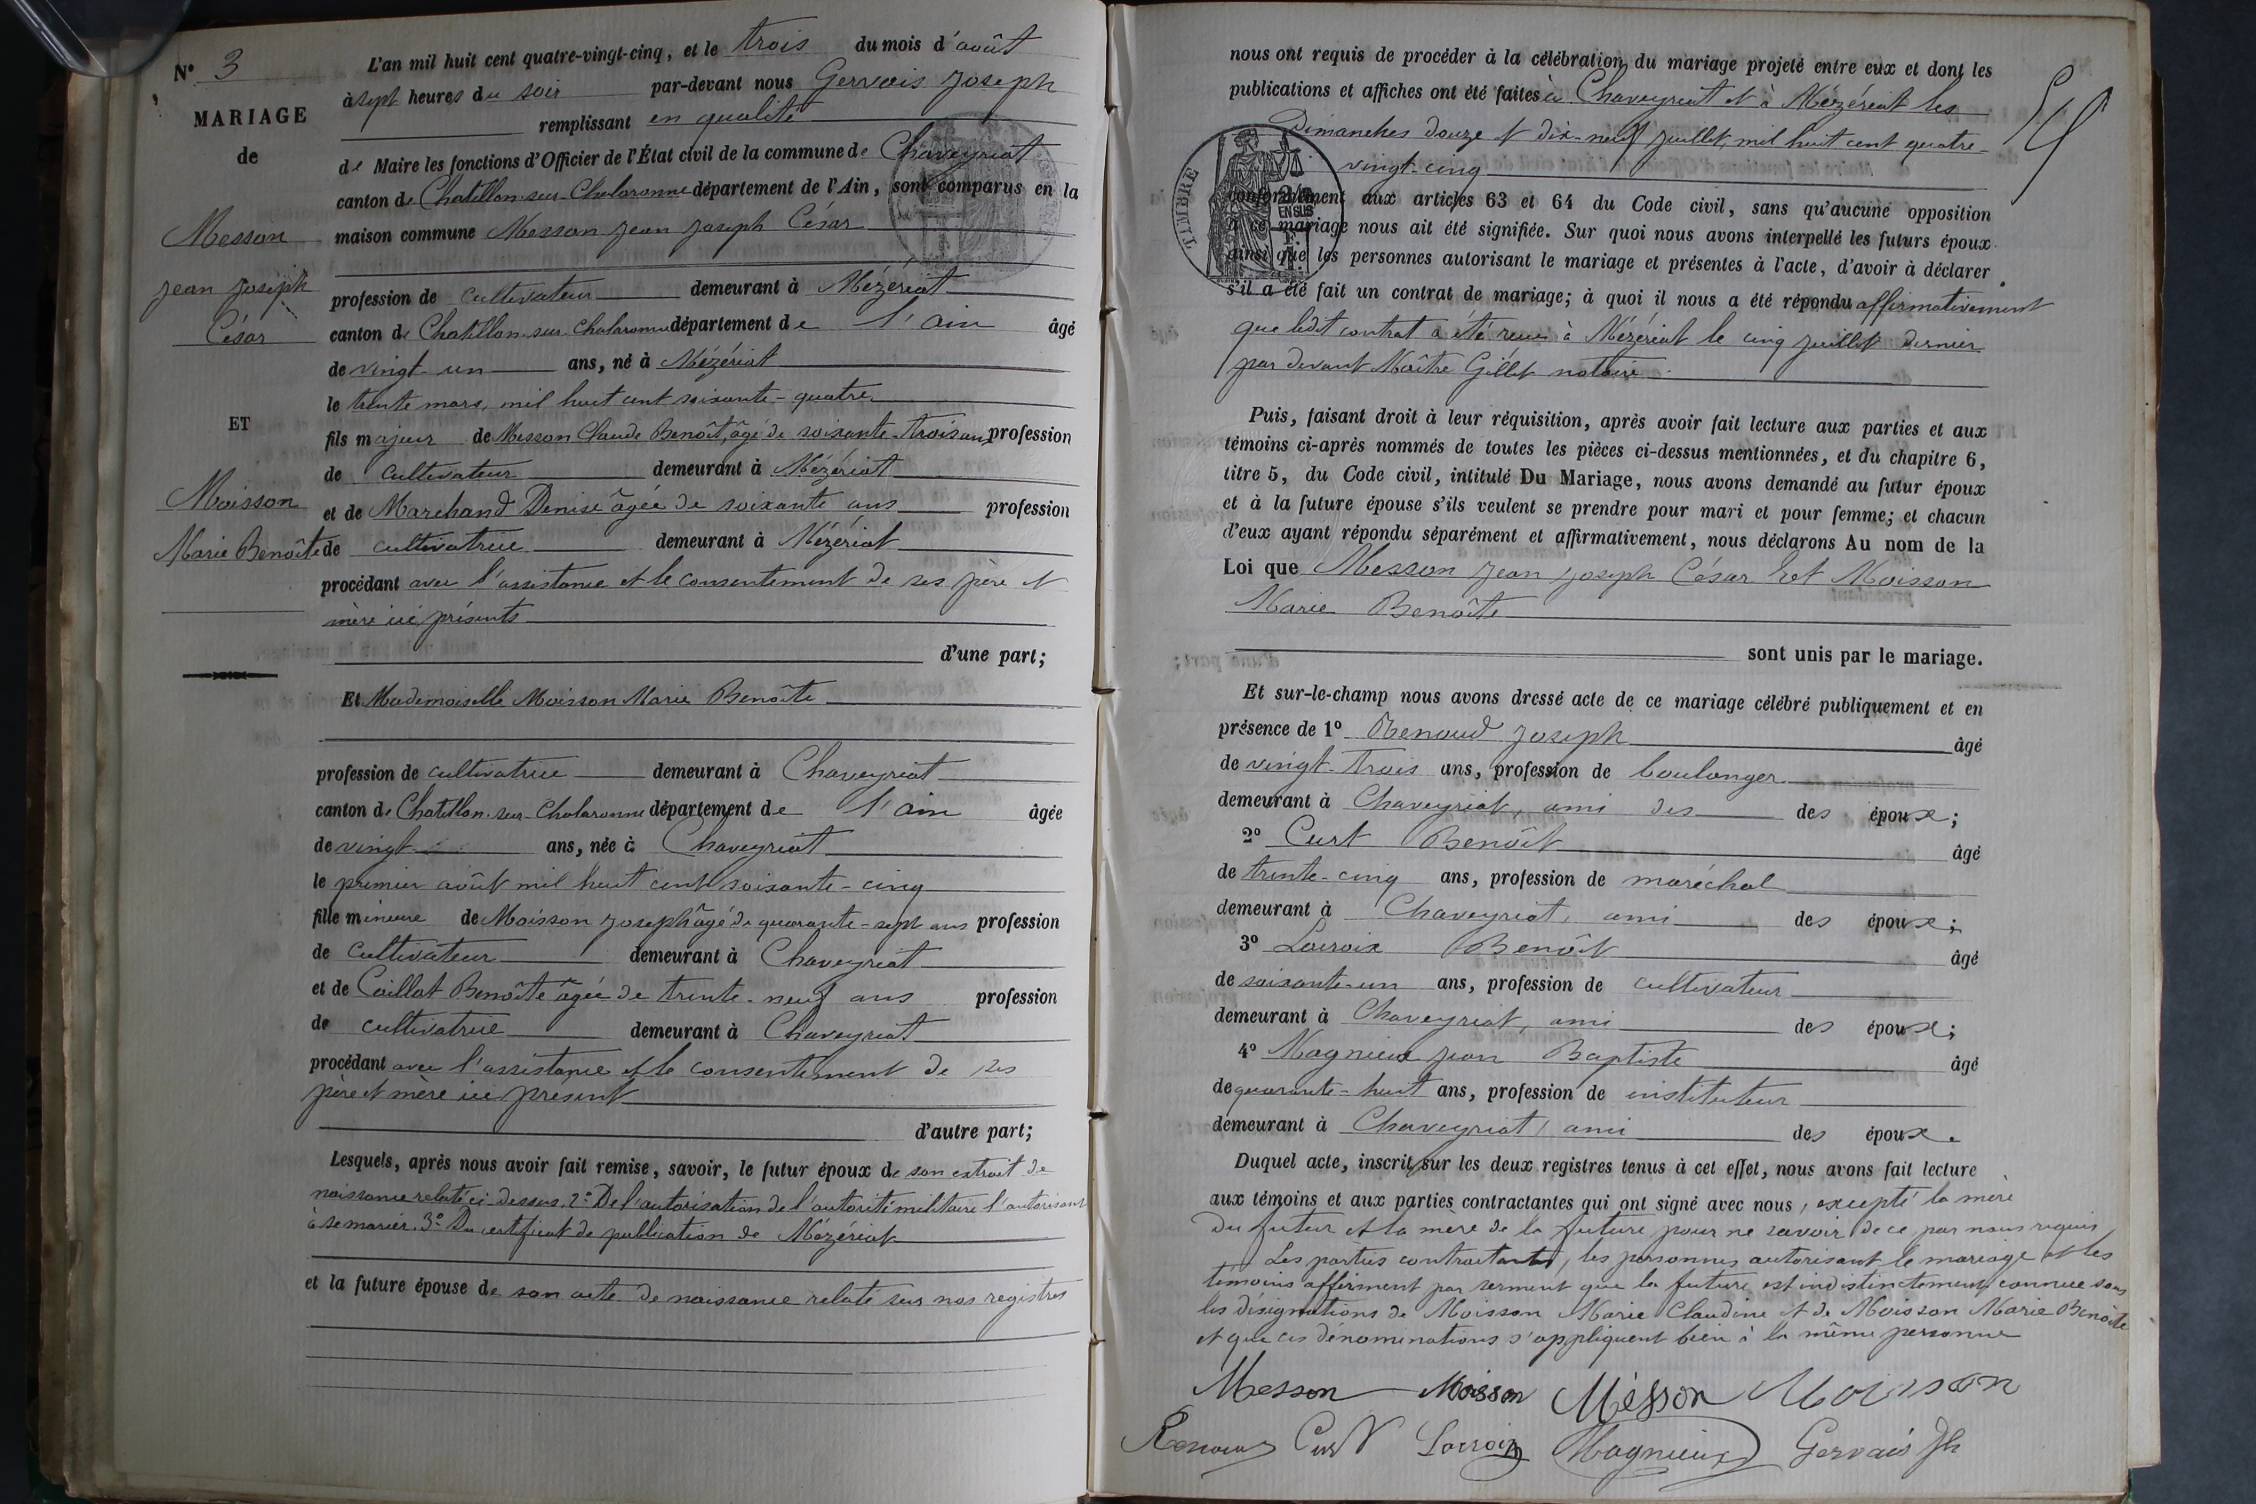 N° 3
MARIAGE
de
Messon
Jean Joseph
César
ET
Moisson
Marie Benoîte
L'an mil huit cent quatre-vingt-cinq, et le trois du mois d'août
à sept heures du soir par-devant nous Gervais Joseph
remplissant en qualité
de Maire les fonctions d'Officier de l'État civil de la commune de Chaveyriat
canton de Chatillon-sur-Chalaronne département de l'Ain, sont comparus en la
maison commune Messon Jean Joseph César
profession de cultivateur demeurant à Mézériat
canton de Chatillon-sur-Chalaronne département de l'ain âgé
de vingt-un ans, né à Mézériat
le trente mars, mil huit cent soixante-quatre
fils majeur de Messon Claude Benoît, âgé de soixante-trois ans profession
de cultivateur demeurant à Mézériat
et de Marchand Denise âgée de soixante ans profession
de cultivatrice demeurant à Mézériat
procédant avec l'assistance et le consentement de ses père et
mère ici présents
d'une part;
Et Mademoiselle Moisson Marie Benoîte
profession de cultivatrice demeurant à Chaveyriat
canton de Chatillon-sur-Chalaronne département de l'ain âgée
de vingt ans, née à Chaveyriat
le premier août mil huit cent soixante-cinq
fille mineure de Moisson Joseph âgé de quarante-sept ans profession
de cultivateur demeurant à Chaveyriat
et de Caillat Benoîte âgée de trente-neuf ans profession
de cultivatrice demeurant à Chaveyriat
procédant avec l'assistance et le consentement de ses
père et mère ici présent
d'autre part;
Lesquels, après nous avoir fait remise, savoir, le futur époux de son extrait de
naissance relaté ci-dessus. 2° De l'autorisation de l'autorité militaire l'autorisant
à se marier. 3° Du certificat de publication de Mézériat
et la future épouse de son acte de naissance relaté sur nos registres
nous ont requis de procéder à la célébration du mariage projeté entre eux et dont les
publications et affiches ont été faites à Chaveyriat et à Mézériat les
Dimanches douze et dix-neuf juillet, mil huit cent quatre-
vingt-cinq
TIMBRE
2/10
EN SUS
conformément aux articles 63 et 64 du Code civil, sans qu'aucune opposition
à ce mariage nous ait été signifiée. Sur quoi nous avons interpellé les futurs époux
ainsi que les personnes autorisant le mariage et présentes à l'acte, d'avoir à déclarer
s'il a été fait un contrat de mariage; à quoi il nous a été répondu affirmativement
que ledit contrat a été reçu à Mézériat le cinq juillet dernier
par devant Maître Gillet notaire.
Puis, faisant droit à leur réquisition, après avoir fait lecture aux parties et aux
témoins ci-après nommés de toutes les pièces ci-dessus mentionnées, et du chapitre 6,
titre 5, du Code civil, intitulé Du Mariage, nous avons demandé au futur époux
et à la future épouse s'ils veulent se prendre pour mari et pour femme; et chacun
d'eux ayant répondu séparément et affirmativement, nous déclarons Au nom de la
Loi que Messon Jean Joseph César et Moisson
Marie Benoîte
sont unis par le mariage.
Et sur-le-champ nous avons dressé acte de ce mariage célébré publiquement et en
présence de 1° Renoud Joseph âgé
de vingt-trois ans, profession de boulanger
demeurant à Chaveyriat, ami des des époux;
2° Curt Benoît âgé
de trente-cinq ans, profession de maréchal
demeurant à Chaveyriat, ami des époux;
3° Lacroix Benoît âgé
de soixante-un ans, profession de cultivateur
demeurant à Chaveyriat, ami des époux;
4° Magnieux Jean Baptiste âgé
de quarante-huit ans, profession de instituteur
demeurant à Chaveyriat, ami des époux.
Duquel acte, inscrit sur les deux registres tenus à cet effet, nous avons fait lecture
aux témoins et aux parties contractantes qui ont signé avec nous, excepté la mère
du futur et la mère de la future pour ne savoir de ce par nous requis
Les parties contractantes, les personnes autorisant le mariage et les
témoins affirment par serment que la future est indistinctement connue sous
les désignations de Moisson Marie Claudine et de Moisson Marie Benoîte
et que ces dénominations s'appliquent bien à la même personne
Messon Moisson Mésson Moisson
Renoud Curt Lacroix Magnieux Gervais Jh